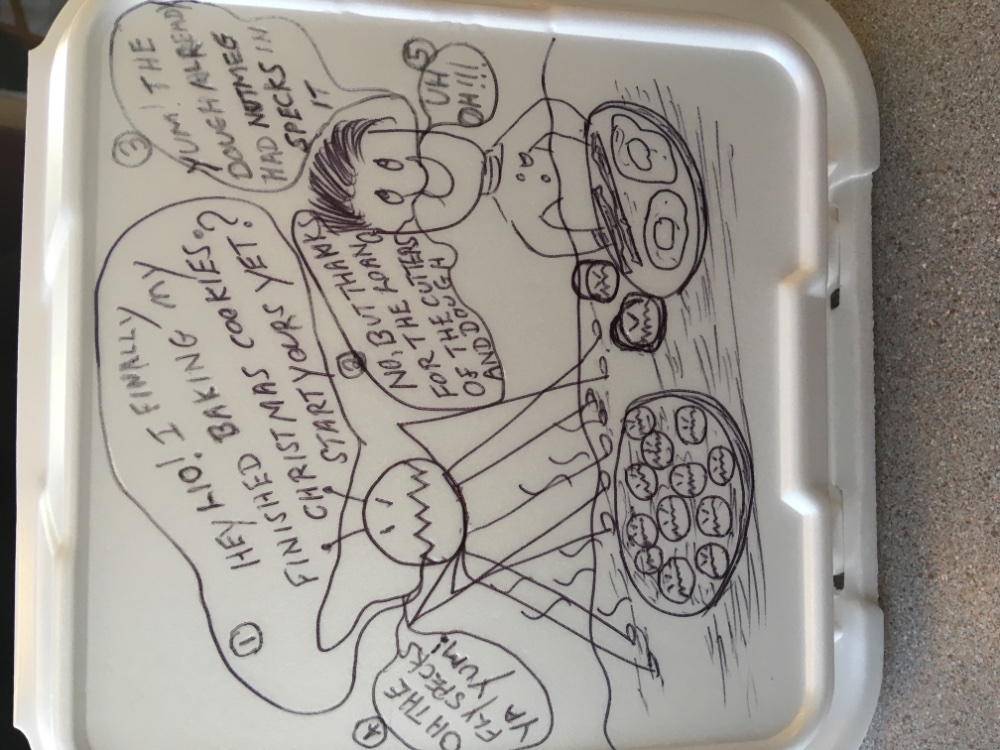 ①
HEY LIO! I FINALLY
FINISHED BAKING MY
CHRISTMAS COOKIES.
START YOURS YET?
②
NO, BUT THANKS
FOR THE LOAN
OF THE CUTTERS
AND DOUGH
③
YUM! THE
DOUGH ALREADY
HAD NUTMEG
SPECKS IN
IT
④
OH THE
FLY SPECKS
YA YUM!
⑤
UH
OH!!!